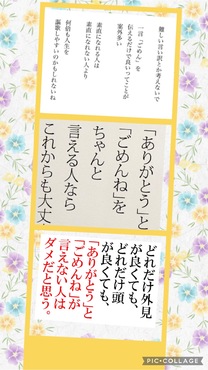 難しい言い訳とか考えないで
一言「ごめん」を
伝えるだけで良いってことが
案外多い
素直になれる人は
素直になれない人より
何倍も人生を
謳歌しやすいのかもしれないね
「ありがとう」と
「ごめんね」を
ちゃんと
言える人なら
これからも大丈夫
どれだけ外見
が良くても、
どれだけ頭
が良くても、
「ありがとう」と
「ごめんね」が
言えない人は
ダメだと思う。
PIC•COLLAGE